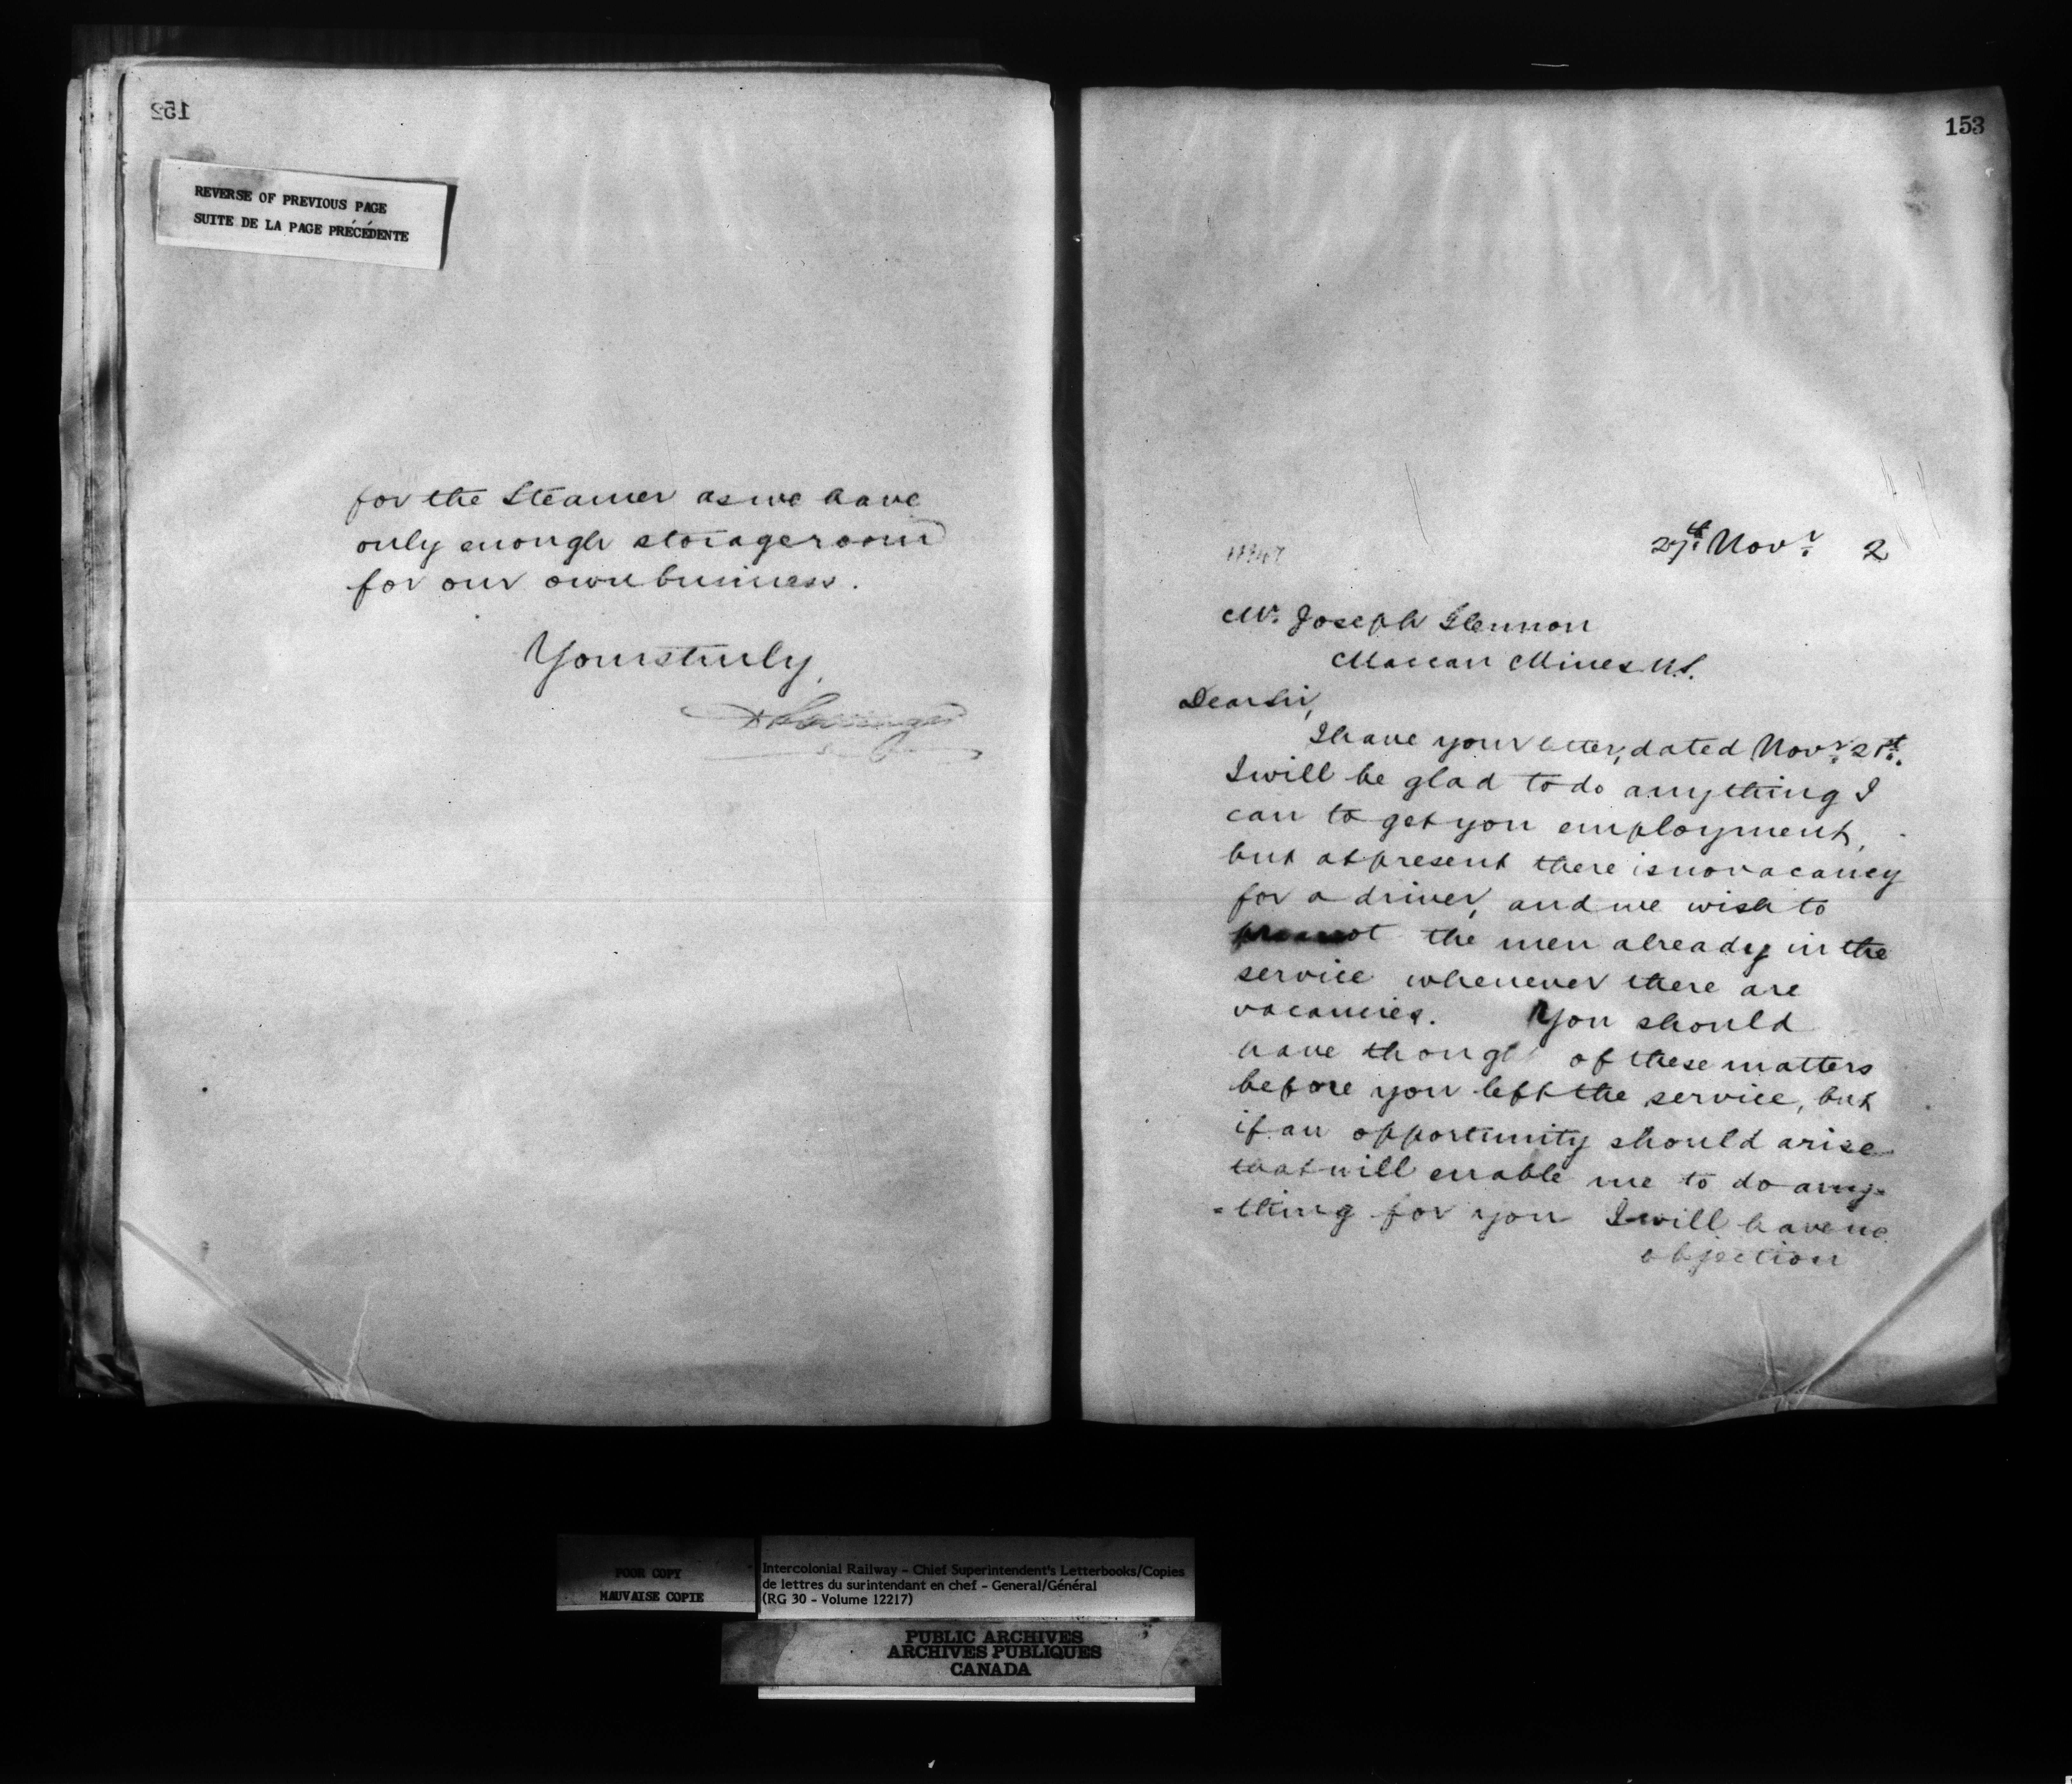 152
REVERSE OF PREVIOUS PAGE
SUITE DE LA PAGE PRÉCÉDENTE
for the Steamer as we have
only enough storage room
for our own business.
Yours truly,
153
27th Novr 2
Mr. Joseph Glennon
Maccan Mines N.S.
Dear Sir,
I have your letter, dated Novr 21st.
I will be glad to do anything I
can to get you employment,
but at present there is no vacancy
for a driver, and we wish to
the men already in the
service whenever there are
vacancies. You should
have thought of these matters
before you left the service, but
if an opportunity should arise
that will enable me to do any=
=thing for you I will have no
objection
POOR COPY
MAUVAISE COPIE
Intercolonial Railway - Chief Superintendent's Letterbooks/Copies
de lettres du surintendant en chef - General/Général
(RG 30 - Volume 12217)
PUBLIC ARCHIVES
ARCHIVES PUBLIQUES
CANADA